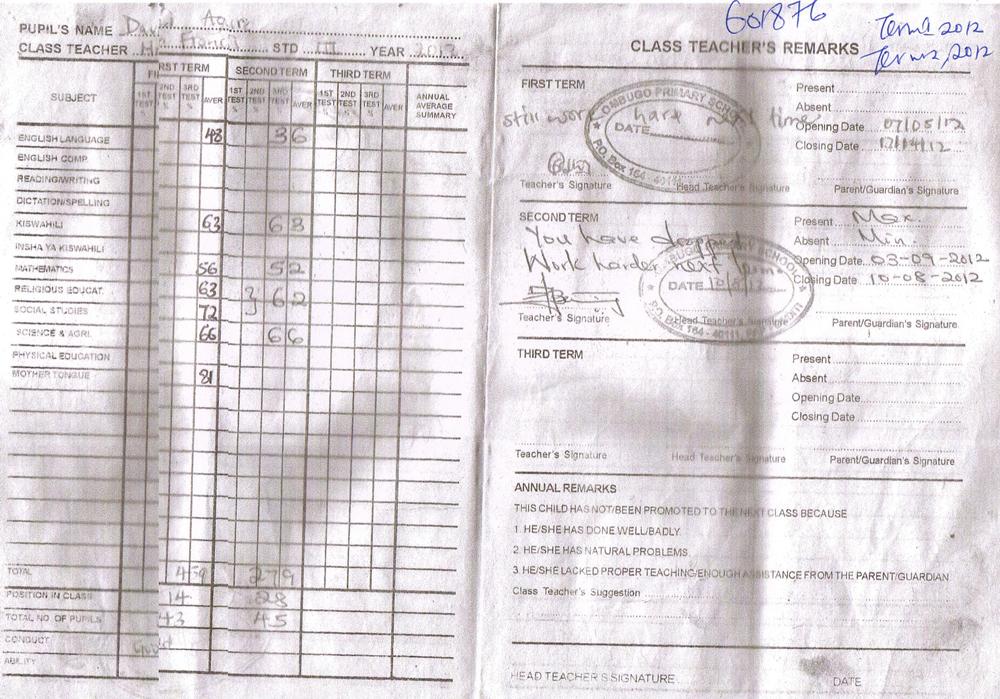 PUPIL'S NAME
CLASS TEACHER STD III YEAR 2012
SUBJECT
FIRST TERM SECOND TERM THIRD TERM
1ST TEST % 2ND TEST % 3RD TEST % AVER 1ST TEST % 2ND TEST % 3RD TEST % AVER 1ST TEST % 2ND TEST % 3RD TEST % AVER ANNUAL AVERAGE SUMMARY
ENGLISH LANGUAGE 48 36
ENGLISH COMP.
READING/WRITING
DICTATION/SPELLING
KISWAHILI 63 63
INSHA YA KISWAHILI
MATHEMATICS 56 52
RELIGIOUS EDUCAT. 63
} 62
SOCIAL STUDIES 72
SCIENCE & AGRI. 66 66
PHYSICAL EDUCATION
MOTHER TONGUE 81
TOTAL 279
POSITION IN CLASS 14 28
TOTAL NO. OF PUPILS 43 45
CONDUCT
ABILITY
601876
Term 1 2012
Term 2, 2012
CLASS TEACHER'S REMARKS
FIRST TERM
still work hard next time
OMBUGO PRIMARY SCHOOL
DATE
P.O. Box 164 - 40111
Present
Absent
Opening Date 07/05/12
Closing Date
Teacher's Signature Head Teacher's Signature Parent/Guardian's Signature
SECOND TERM
You have dropped
Work harder next term
DATE
P.O. Box 164 - 40111
Present Max.
Absent Min.
Opening Date 03-09-2012
Closing Date 10-08-2012
Teacher's Signature Head Teacher's Signature Parent/Guardian's Signature
THIRD TERM
Present
Absent
Opening Date
Closing Date
Teacher's Signature Head Teacher's Signature Parent/Guardian's Signature
ANNUAL REMARKS
THIS CHILD HAS NOT/BEEN PROMOTED TO THE NEXT CLASS BECAUSE
1. HE/SHE HAS DONE WELL/BADLY.
2. HE/SHE HAS NATURAL PROBLEMS.
3. HE/SHE LACKED PROPER TEACHING/ENOUGH ASSISTANCE FROM THE PARENT/GUARDIAN
Class Teacher's Suggestion
HEAD TEACHER'S SIGNATURE DATE